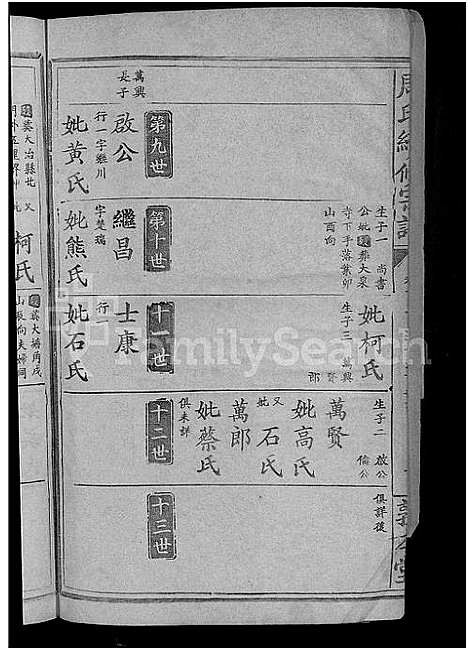 周氏續修宗譜
生子一 尚書
公妣合葬大泉
寺下手落葉卯
山酉向
妣柯氏
生子三 萬興
郎
生子二 啟公
倫公
萬賢
妣高氏
又妣石氏
萬郎
妣蔡氏
俱未詳
俱詳後
第九世
第十世
十一世
十二世
十三世
萬興長子
啟公
行一字雞川
妣黃氏
繼昌
字楚瑞
妣熊氏
士康
行一
妣石氏
葬大冶縣北
柯氏
FamilySearch